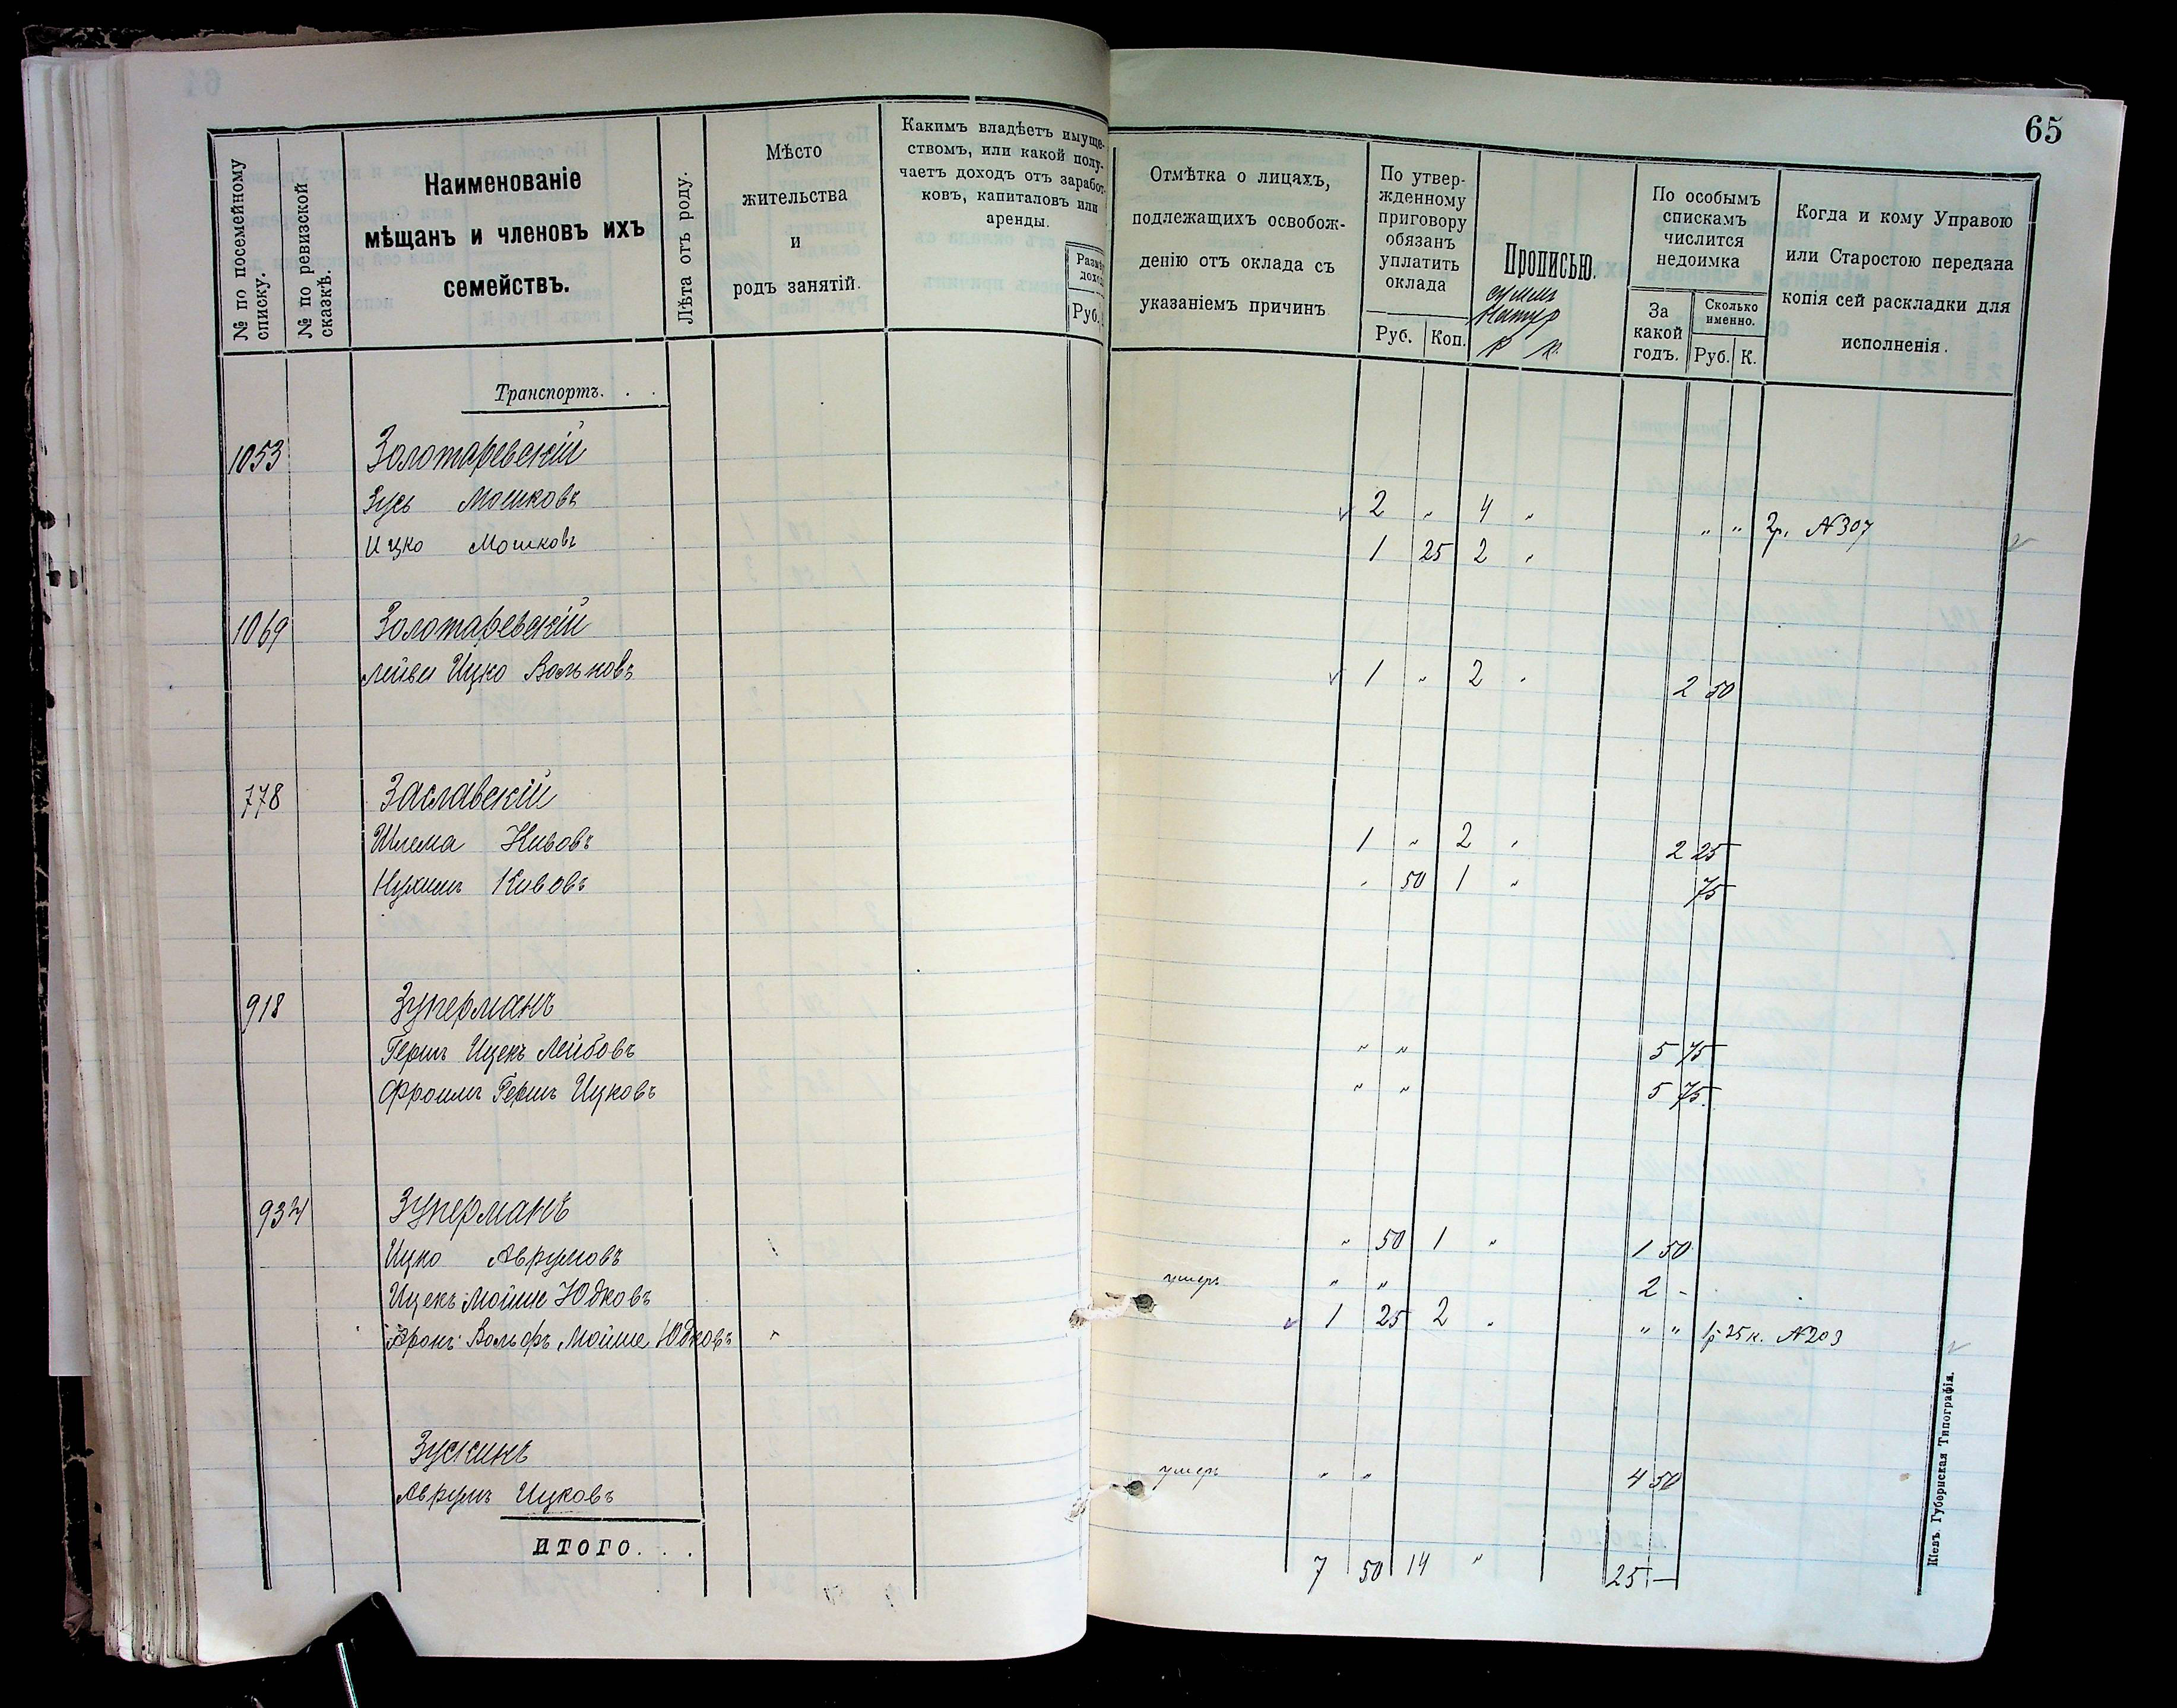 65
№ по посемейному списку.
№ по ревизской сказкѣ.
Наименованіе
мѣщанъ и членовъ ихъ
семействъ.
Лѣта отъ роду.
Мѣсто
жительства
и
родъ занятій.
Какимъ владѣетъ имуще-
ствомъ, или какой полу-
чаетъ доходъ отъ заработ-
ковъ, капиталовъ или
аренды.
Руб.
Отмѣтка о лицахъ,
подлежащихъ освобож-
денію отъ оклада съ
указаніемъ причинъ
По утвер-
жденному
приговору
обязанъ
уплатить
оклада
Руб. Коп.
Прописью.
По особымъ
спискамъ
числится
недоимка
За
какой
годъ.
Сколько
именно.
Руб. К.
Когда и кому Управою
или Старостою передана
копія сей раскладки для
исполненія.
Транспортъ. . .
1053 Золотаревскій
Зусь Мошковъ 2 " 4 " " " 2р. №307
Ицко Мошковъ 1 25 2 "
1069 Золотаревскій
Лейви Ицко Вольковъ 1 " 2 " 2 50
778 Заславскій
Шлема Кивовъ 1 " 2 " 2 25
Нухимъ Кивовъ " 50 1 " 75
918 Зуперманъ
Гершъ Ицекъ Лейбовъ " " 5 75
Фроимъ Гершъ Ицковъ " " 5 75
934 Зуперманъ
Ицко Аврумовъ " 50 1 " 1 50
Ицекъ Мойше Юдковъ умеръ " " 2 -
Аронъ Вольфъ Мойше Юдковъ 1 25 2 " " " 1р 25к. №203
Зускинъ
Аврумъ Ицковъ умеръ " " 4 50
ИТОГО. . . 7 50 14 " 25 —
Кіевъ. Губернская Типографія.